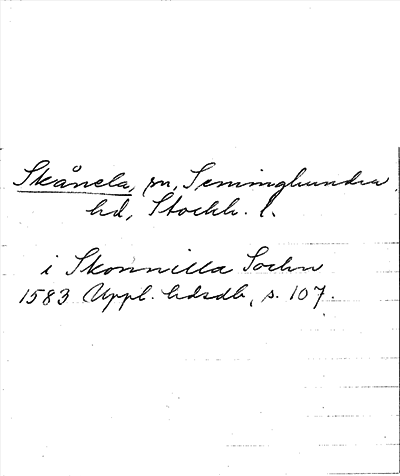 Skånela, sn, Seminghundra
hd, Stockh. l.
i Skonnilla Sochn
1583 Uppl. hdsdb, s. 107.